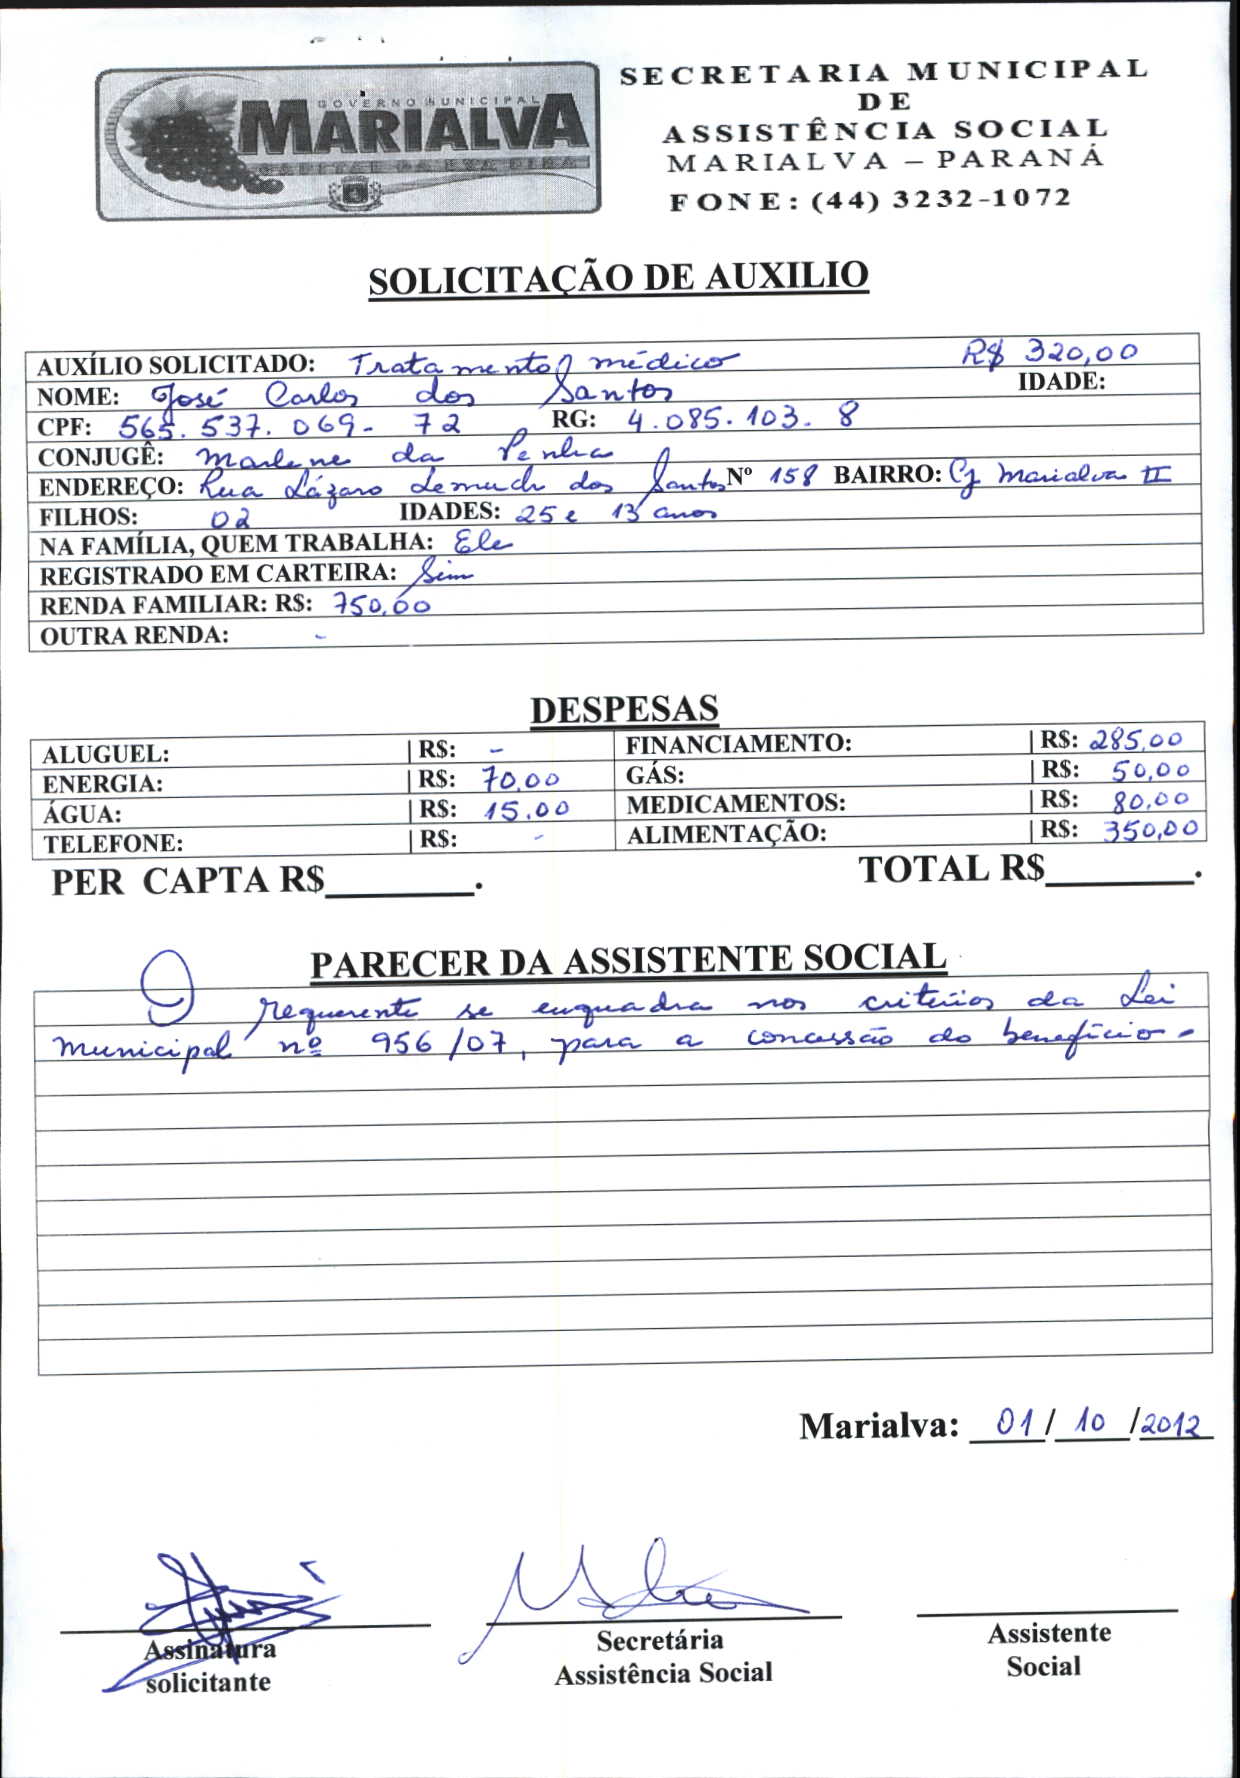 GOVERNO MUNICIPAL
MARIALVA
CAPITAL DA UVA FINA
SECRETARIA MUNICIPAL
DE
ASSISTÊNCIA SOCIAL
MARIALVA – PARANÁ
FONE: (44) 3232-1072
SOLICITAÇÃO DE AUXILIO
AUXÍLIO SOLICITADO: Tratamento médico R$ 320,00
NOME: José Carlos dos Santos IDADE:
CPF: 565.537.069-72 RG: 4.085.103.8
CONJUGÊ: Marlene da Penha
ENDEREÇO: Rua Lázaro dos Santos Nº 158 BAIRRO: Cj Marialva II
FILHOS: 02 IDADES: 25 e 13 anos
NA FAMÍLIA, QUEM TRABALHA: Ele
REGISTRADO EM CARTEIRA: Sim
RENDA FAMILIAR: R$: 750,00
OUTRA RENDA: -
DESPESAS
ALUGUEL: | R$: - FINANCIAMENTO: | R$: 285,00
ENERGIA: | R$: 70,00 GÁS: | R$: 50,00
ÁGUA: | R$: 15,00 MEDICAMENTOS: | R$: 80,00
TELEFONE: | R$: - ALIMENTAÇÃO: | R$: 350,00
PER CAPTA R$________. TOTAL R$________.
PARECER DA ASSISTENTE SOCIAL
O requerente se enquadra nos critérios da Lei
Municipal nº 956/07, para a concessão do benefício -
Marialva: 01/10/2012
Assinatura
solicitante
Secretária
Assistência Social
Assistente
Social